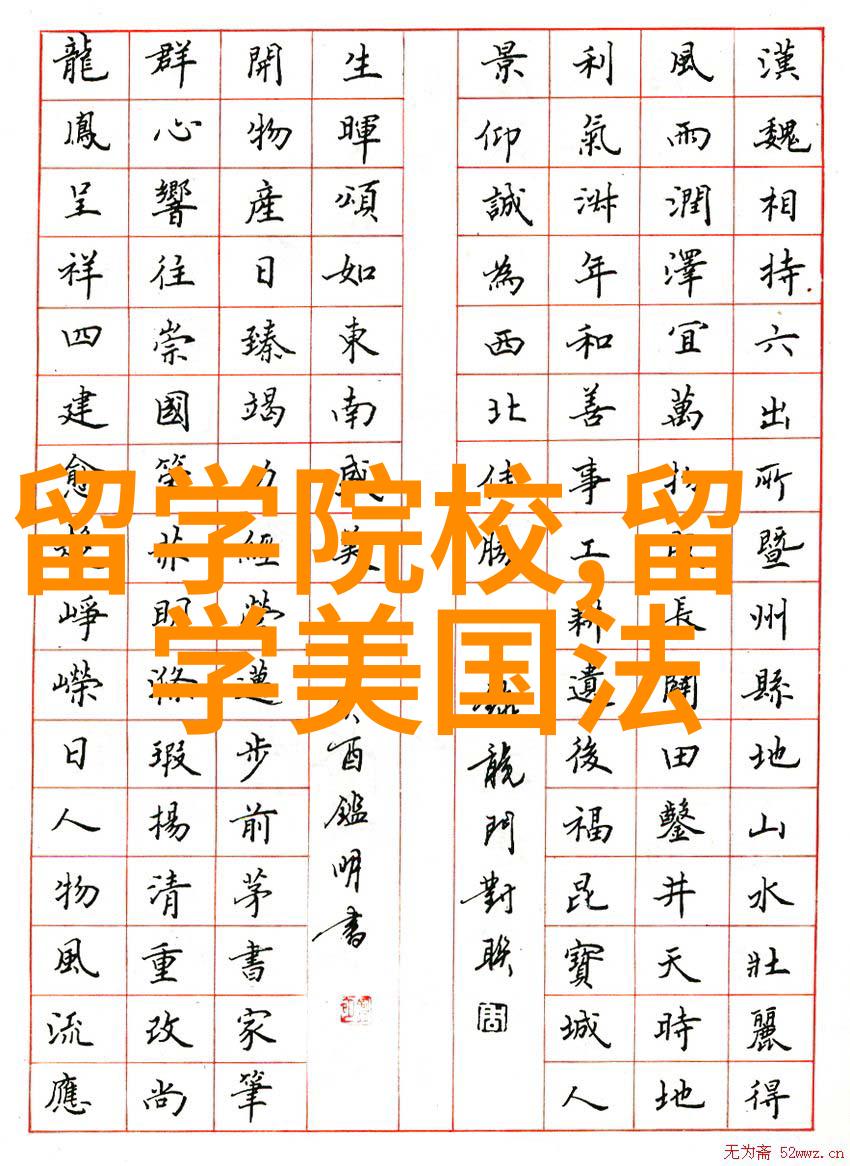 留学院校,留
学美国法
漢魏相持六出所暨州縣地山水壯麗得
風雨潤澤宜萬物長田鑿井天時地
利氣年和善事工耕遺後福昆寶城人
景仰誠為西北佳勝
龍門對聯
生暉頌如東南盛美
酉鑑明書
開物產日臻竭力經邁步前茅書家筆
群心響往崇國策明滌瑕揚清重改尚
龍鳳呈祥四建愈崢嶸日人物風流應
无为斋 52wwz.cn